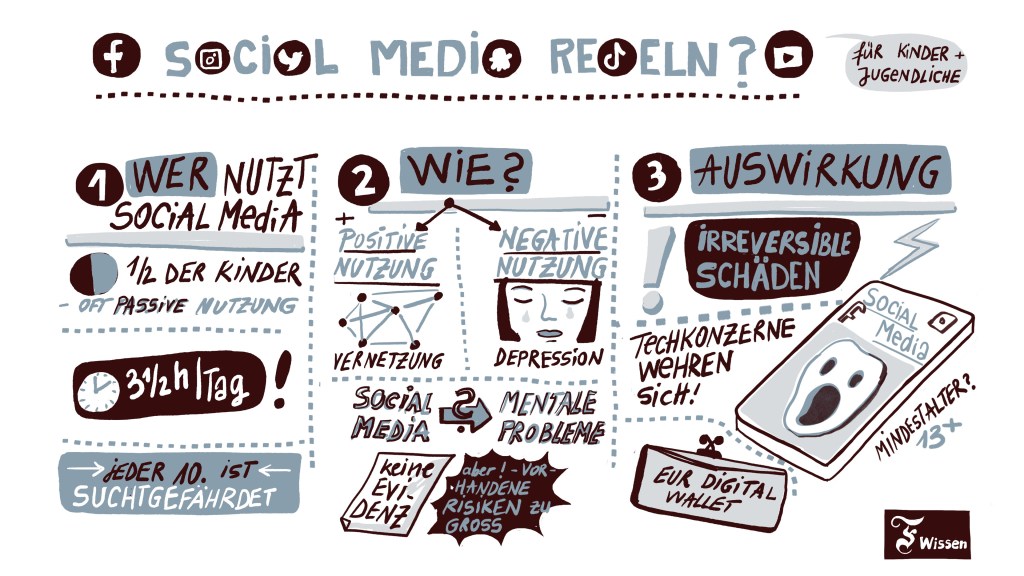 SOCIAL MEDIA REGELN?
für KINDER +
JUGENDLICHE
1 WER NUTZT
SOCIAL MEDIA
1/2 DER KINDER
- OFT PASSIVE NUTZUNG
3 1/2 h/Tag !
→ JEDER 10. IST ←
SUCHTGEFÄHRDET
2 WIE?
+
POSITIVE
NUTZUNG
VERNETZUNG
-
NEGATIVE
NUTZUNG
DEPRESSION
SOCIAL
MEDIA
?
MENTALE
PROBLEME
keine
EVI-
DENZ
aber! - VOR-
HANDENE
RISIKEN ZU
GROSS
3 AUSWIRKUNG
!
IRREVERSIBLE
SCHÄDEN
TECHKONZERNE
WEHREN
SICH!
SOCIAL
Media
MINDESTALTER?
13+
EUR DIGITAL
WALLET
F Wissen